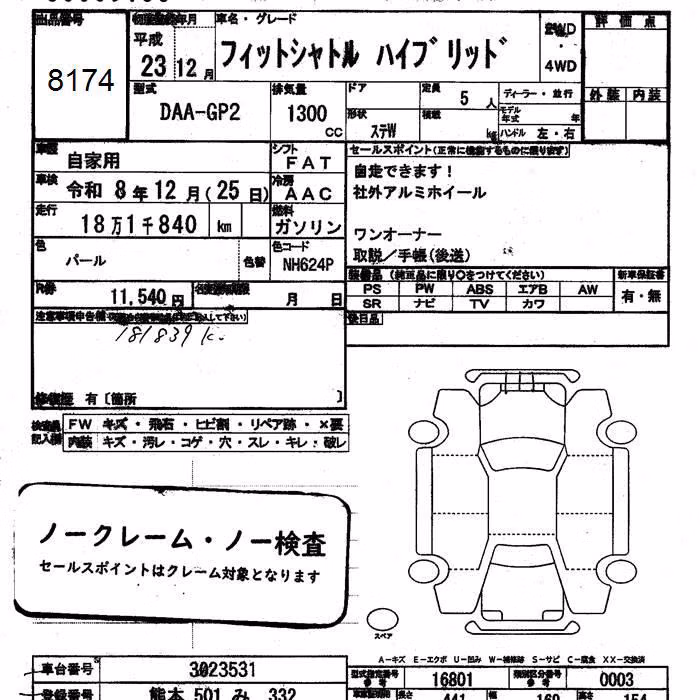 出品番号
8174
初度登録年月
平成
23 12月
車名・グレード
フィットシャトル ハイブリッド
2WD
・
4WD
評価点
外装 内装
型式
DAA-GP2
排気量
1300
CC
ドア
形状
ステW
定員
5 人
積載
kg
ディーラー・並行
モデル年式 年
ハンドル 左・右
車歴
自家用
シフト
FAT
車検
令和 8年12月(25日)
冷房
AAC
走行
18万1千840 km
燃料
ガソリン
色
パール
色替
色コード
NH624P
R券
11,540円
名変期限
月 日
セールスポイント(正常に機能するものに限ります)
自走できます!
社外アルミホイール
ワンオーナー
取説/手帳(後送)
装備品 (純正品に限り○をつけてください)
PS PW ABS エアB AW
SR ナビ TV カワ
新車保証書
有・無
後日品
注意事項申告欄
181839k
修復歴 有〔箇所 〕
検査員記入欄
FW キズ・飛石・ヒビ割・リペア跡・×要
内装 キズ・汚レ・コゲ・穴・スレ・キレ・破レ
ノークレーム・ノー検査
セールスポイントはクレーム対象となります
スペア
A-キズ E-エクボ U-凹み W-補修跡 S-サビ C-腐食 XX-交換済
車台番号
3023531
型式指定番号
参考
16801
類別区分番号
参考
0003
登録番号
熊本 501 み 332
長さ
441
幅
169
高さ
154